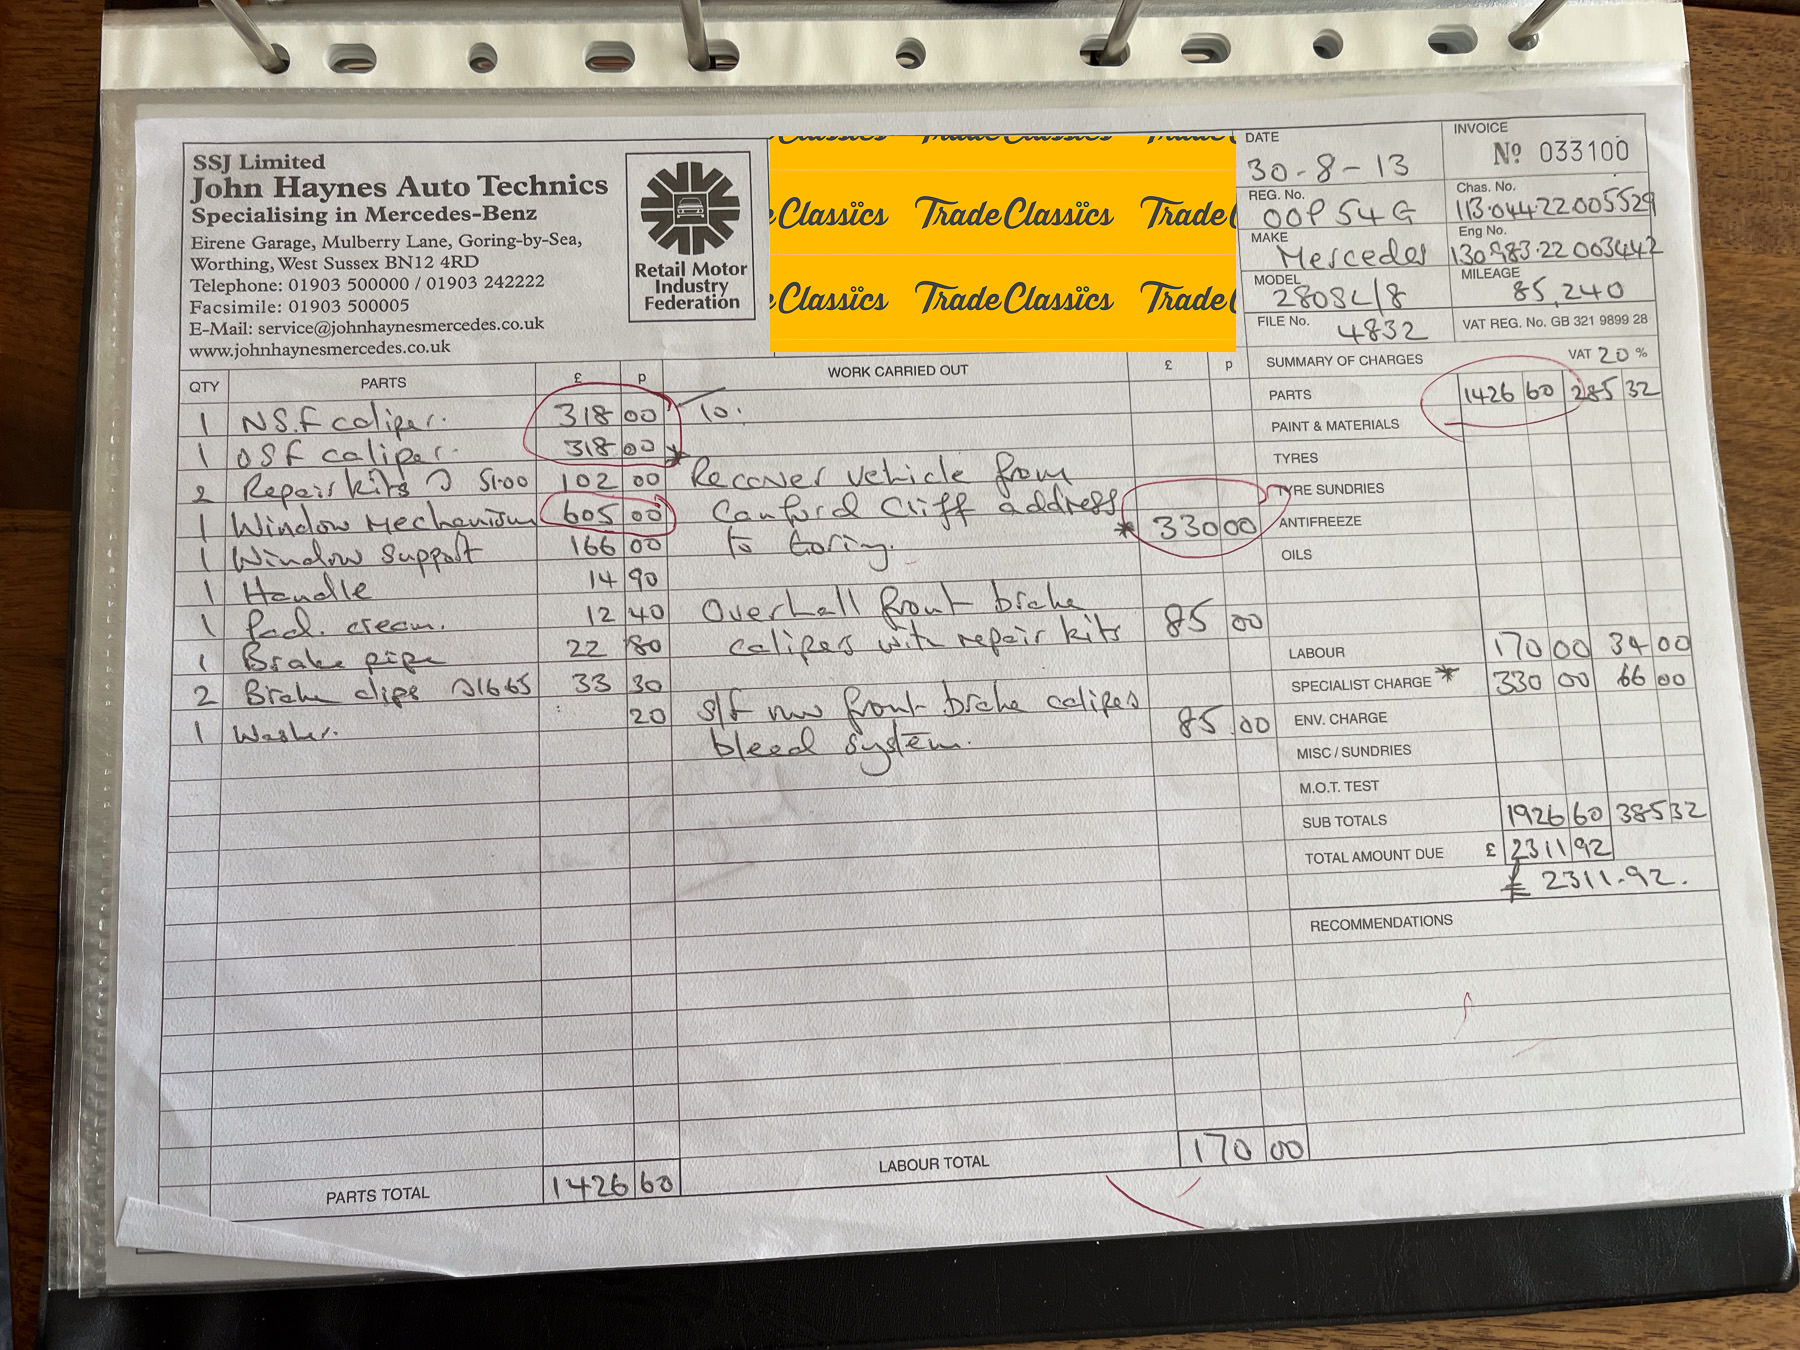 SSJ Limited
John Haynes Auto Technics
Specialising in Mercedes-Benz
Eirene Garage, Mulberry Lane, Goring-by-Sea,
Worthing, West Sussex BN12 4RD
Telephone: 01903 500000 / 01903 242222
Facsimile: 01903 500005
E-Mail: service@johnhaynesmercedes.co.uk
www.johnhaynesmercedes.co.uk
Retail Motor
Industry
Federation
Classics TradeClassics Trade
Classics TradeClassics Trade
DATE
30-8-13
INVOICE
Nº 033100
REG. No.
OOP 54G
Chas. No.
113.044.22005529
MAKE
Mercedes
Eng No.
130.983.22003442
MODEL
280SL/8
MILEAGE
85,240
FILE No.
4832
VAT REG. No. GB 321 9899 28
QTY PARTS £ p WORK CARRIED OUT £ p
1 N.S.F caliper. 318 00 To.
1 OSF caliper. 318 00 *
2 Repair kits @ 51.00 102 00 Recover vehicle from
1 Window Mechanism 605 00 Canford Cliff address * 330 00
1 Window Support 166 00 to Goring.
1 Handle 14 90
1 Pad. cream. 12 40 Overhall front brake 85 00
1 Brake pipe 22 80 calipers with repair kits
2 Brake clips @ 16.65 33 30
1 Washer. 20 S/F new front brake calipes 85.00
bleed system.
PARTS TOTAL 1426 60
LABOUR TOTAL 170 00
SUMMARY OF CHARGES VAT 20 %
PARTS 1426 60 285 32
PAINT & MATERIALS
TYRES
TYRE SUNDRIES
ANTIFREEZE
OILS
LABOUR 170 00 34 00
SPECIALIST CHARGE * 330 00 66 00
ENV. CHARGE
MISC / SUNDRIES
M.O.T. TEST
SUB TOTALS 1926 60 385 32
TOTAL AMOUNT DUE £ 2311 92
£ 2311.92.
RECOMMENDATIONS